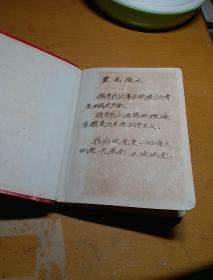 最高指示
领导我们事业的核心力量
是中国共产党。
指导我们思想的理论
基础是马克思列宁主义。
我们的党是一个伟大
的党，光荣的党，正确的党。